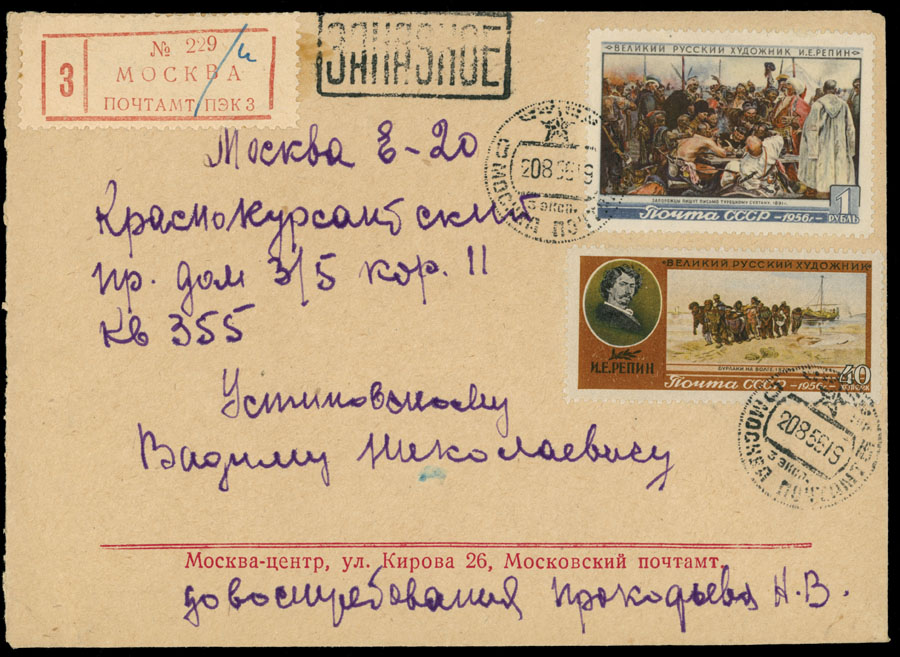 № 229/и
З
МОСКВА
ПОЧТАМТ ПЭК 3
ЗАКАЗНОЕ
«ВЕЛИКИЙ РУССКИЙ ХУДОЖНИК И.Е.РЕПИН»
ЗАПОРОЖЦЫ ПИШУТ ПИСЬМО ТУРЕЦКОМУ СУЛТАНУ. 1891г.
Почта СССР -1956г-
1 РУБЛЬ
СССР
МОСКВА
2085619
3 эксп.
Москва Е-20
Краснокурсантский
пр. дом 3/5 кор. 11
кв 355
«ВЕЛИКИЙ РУССКИЙ ХУДОЖНИК»
И.Е.РЕПИН
БУРЛАКИ НА ВОЛГЕ
Почта СССР -1956г-
40 КОПЕЕК
МОСКВА
2085619
3 эксп.
Устиновскому
Вадиму Николаевичу
Москва-центр, ул. Кирова 26, Московский почтамт.
довостребования Прокофьева Н.В.